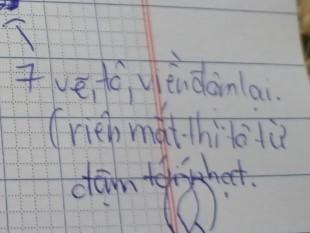 7 vẽ, tô, viền đậm lại.
(riên mắt thì tô từ
đậm tới nhạt.